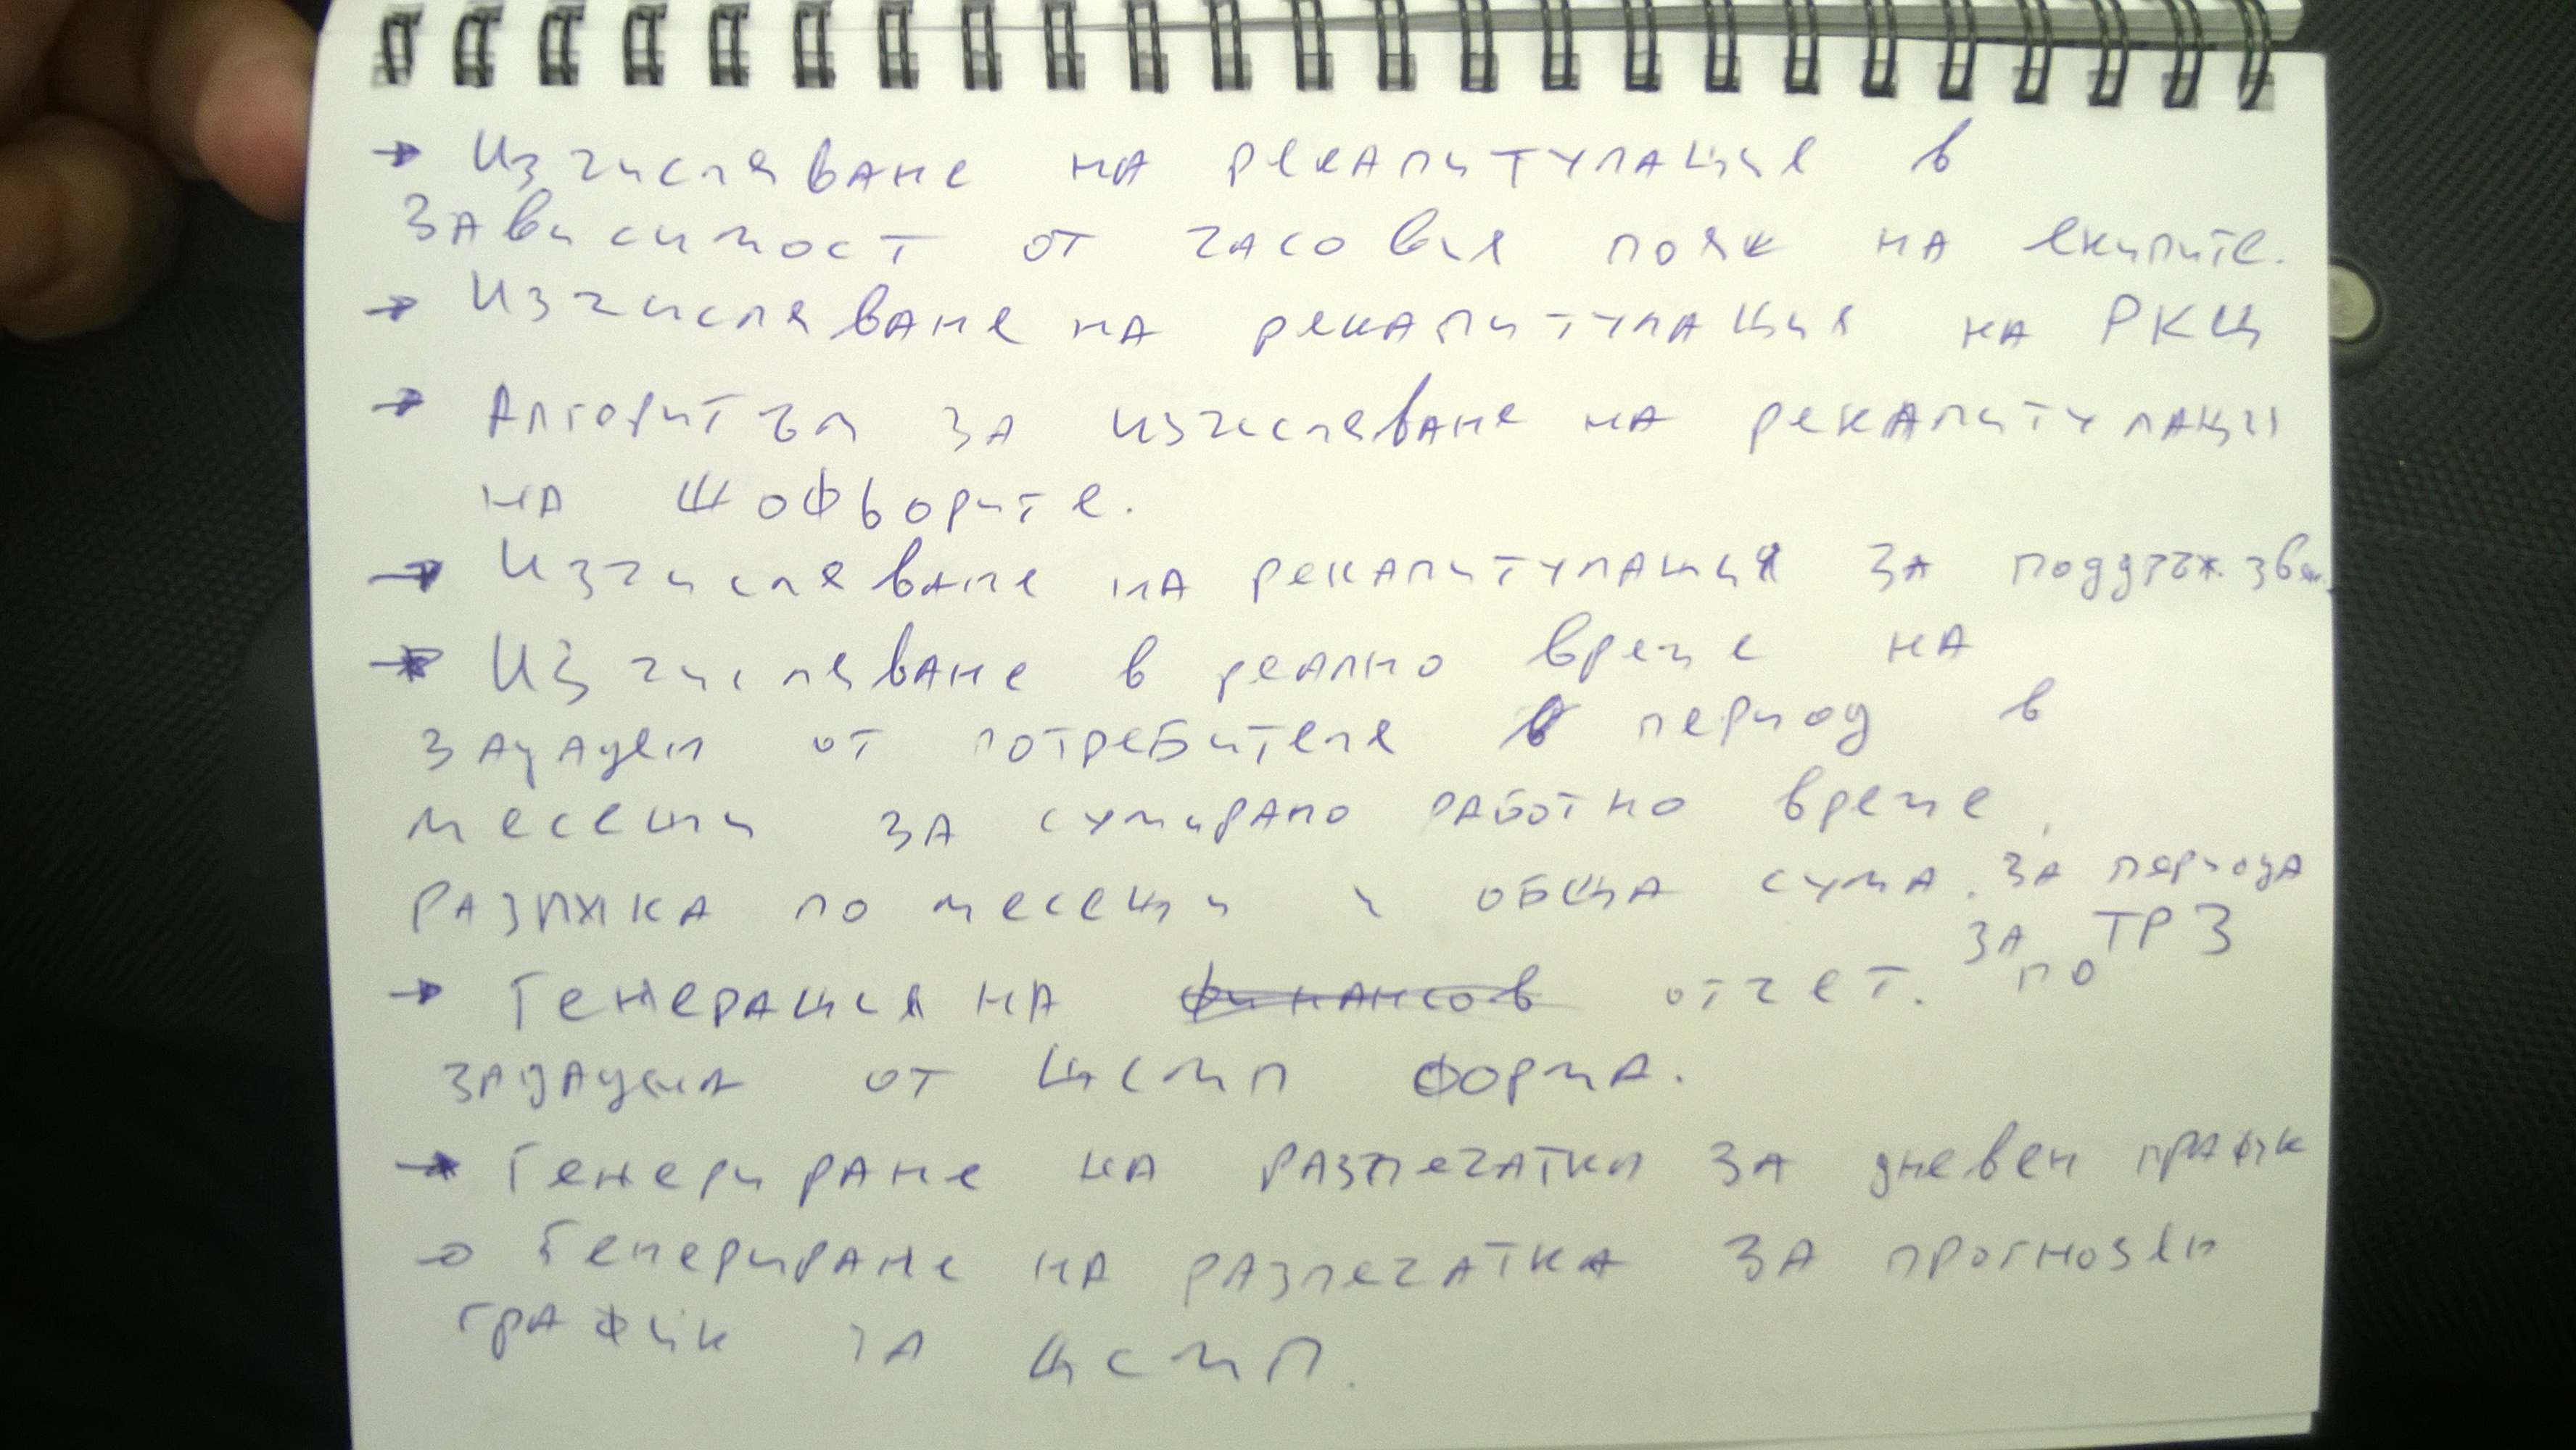 → Изчисляване на рекапитулация в
зависимост от часовия пояк на екипите.
→ Изчисляване на рекапитулация на РКЦ
→ Алгоритъм за изчисляване на рекапитулаци
на шофьорите.
→ Изчисляване на рекапитулация за поддръж.
→ Изчисляване в реално време на
зададен от потребителя период в
месеци за сумирано работно време,
разпика по месеци и обща сума. за периода
за ТРЗ
→ Генерация на финансов отчет. по
зададена от ЦСМП форма.
→ Генериране на разпечатка за дневен график
→ Генериране на разпечатка за прогнозен
график за ЦСМП.